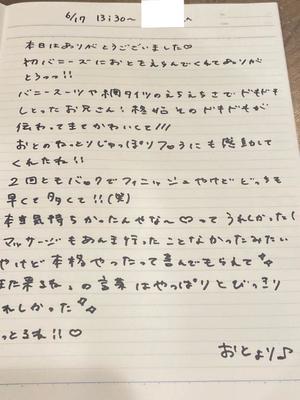 6/17 13:30~ ん
本日はありがとうございました♡
初バニーズにおとをえらんでくれてありが
とうっっ!!
バニースーツや網タイツのえちえちさでドキドキ
しとったお兄さん!格始そのドキドキが
伝わってきてかわいくて///
おとのねっとりじゅっぽりフ○うにも感動して
くれたね!!
2回ともバックでフィニッシュやけどどっちも
早くて多くて!!(笑)
本当気持ちかったんやな〜♡ってうれしかった(
マッサージもあんま行ったことなかったみたい
やけど本格やったって喜んでもらえて
また来るな。の言葉はやっぱりとびっきり
れしかった
っとるね!!♡
おとより♪